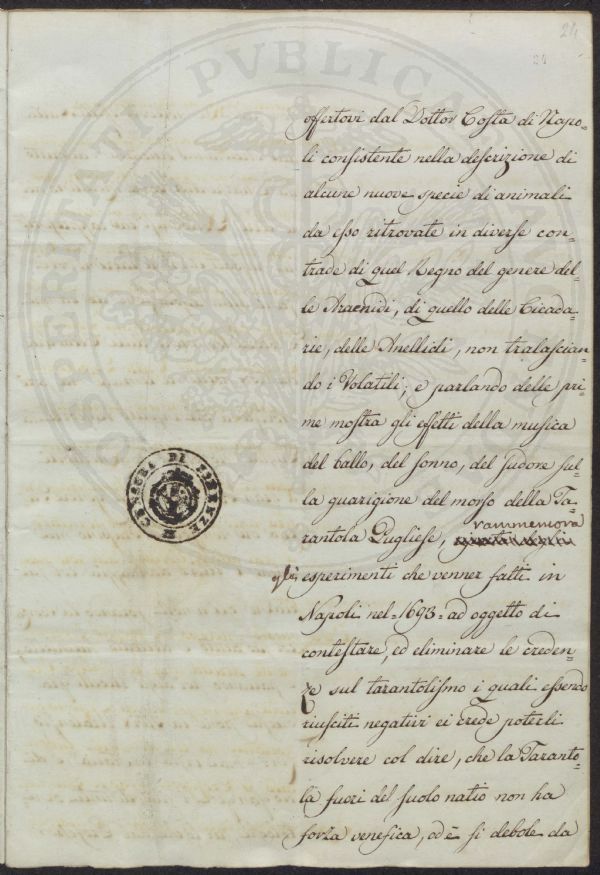 24
offertovi dal Dottor Costa di Napo=
li consistente nella descrizione di
alcune nuove specie di animali
da esso ritrovate in diverse con=
trade di quel Regno del genere del=
le Aracnidi, di quello delle Cicada=
rie, delle Anellidi, non tralascian=
do i Volatili; e parlando delle pri=
me mostra gli effetti della musica
del ballo, del sonno, del sudore sul=
la guarigione del morso della Ta=
rammemora
rantola Pugliese,
gli esperimenti che venner fatti in
Napoli nel=1693=ad oggetto di
contestare, ed eliminare le creden=
ze sul tarantolismo i quali essendo
riusciti negativi ei crede poterli
risolvere col dire, che la Taranto=
la fuori del suolo natio non ha
forza venefica, od è si debole da
CENSURA DI FIRENZE